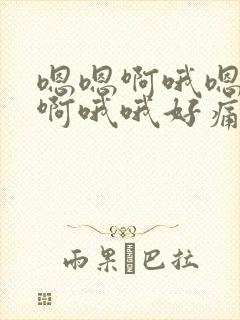 嗯嗯啊哦嗯
啊哦哦好痛
雨果�巴拉